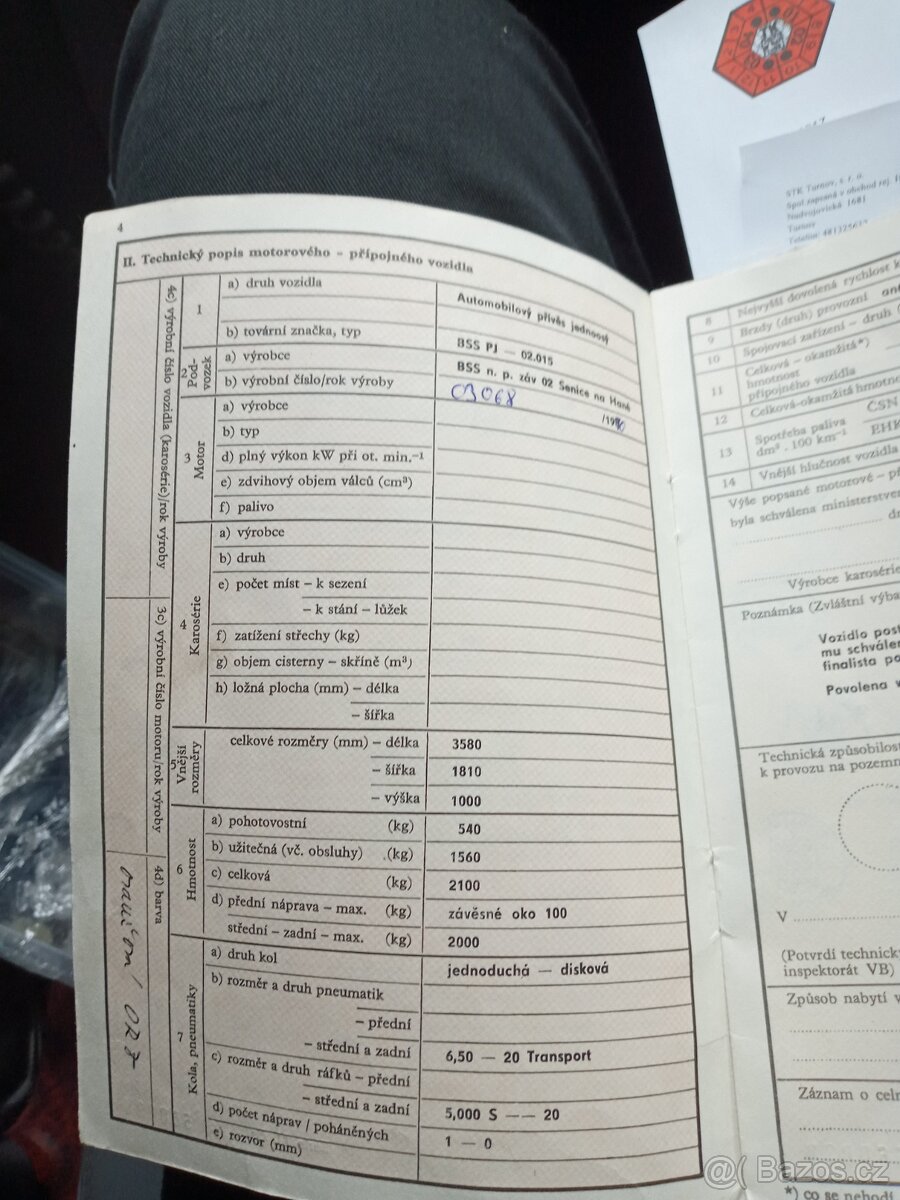 STK Turnov, s. r. o.
Spol.zapsaná v obchod rej.
Nudvojovická 1681
Turnov
Telefon: 481325632
4
II. Technický popis motorového – přípojného vozidla
4c) výrobní číslo vozidla (karosérie)/rok výroby
3c) výrobní číslo motoru/rok výroby
4d) barva
1
a) druh vozidla
Automobilový přívěs jednoosý
b) tovární značka, typ
BSS PJ — 02.015
2 Pod-
vozek
a) výrobce
BSS n. p. záv 02 Senice na Hané
b) výrobní číslo/rok výroby
03068
3
Motor
a) výrobce
b) typ
d) plný výkon kW při ot. min.⁻¹
e) zdvihový objem válců (cm³)
f) palivo
4
Karosérie
a) výrobce
b) druh
e) počet míst – k sezení
– k stání – lůžek
f) zatížení střechy (kg)
g) objem cisterny – skříně (m³)
h) ložná plocha (mm) – délka
– šířka
5
Vnější
rozměry
celkové rozměry (mm) – délka 3580
– šířka 1810
– výška 1000
6
Hmotnost
a) pohotovostní (kg) 540
b) užitečná (vč. obsluhy) (kg) 1560
c) celková (kg) 2100
d) přední náprava – max. (kg) závěsné oko 100
střední – zadní – max. (kg) 2000
7
Kola, pneumatiky
a) druh kol jednoduchá — disková
b) rozměr a druh pneumatik
– přední
– střední a zadní 6,50 — 20 Transport
c) rozměr a druh ráfků – přední
– střední a zadní 5,000 S —— 20
d) počet náprav / poháněných 1 — 0
e) rozvor (mm)
8 Nejvyšší dovolená rychlost
9 Brzdy (druh) provozní
10 Spojovací zařízení – druh
11 Celková – okamžitá*)
hmotnost
přípojného vozidla
12 Celková-okamžitá
13 Spotřeba paliva
dm³ . 100 km⁻¹
ČSN
EHK
14 Vnější hlučnost vozidla
Výše popsané motorové –
byla schválena
Výrobce
Poznámka (Zvláštní
Vozidlo
mu
finalista
Povolena
Technická
k provozu na
V
(Potvrdí
inspektorát VB)
Způsob nabytí
Záznam o
*) co se nehodí
@( Bazos.cz